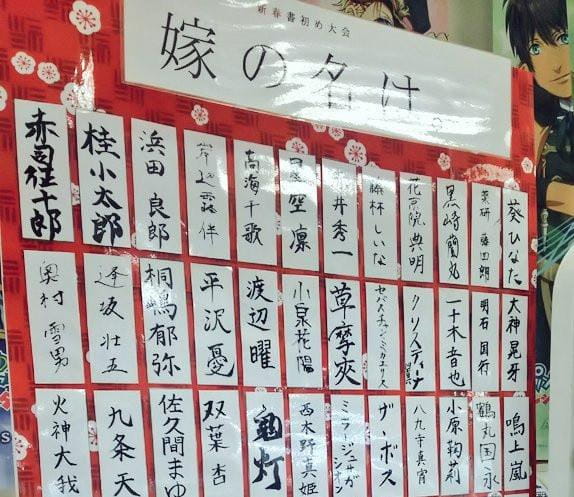 新春書初め大会
嫁の名は。
葵ひなた
薬研藤四朗
黒崎蘭丸
花京院典明
藤林しいな
井秀一
星空凛
高海千歌
岸辺露伴
浜田良郎
桂小太郎
赤司征十郎
大神晃牙
明石国行
一十木音也
クリスティーナ
セバスチャン・ミカエリス
草摩夾
小泉花陽
渡辺曜
平沢憂
桐嶋郁弥
逢坂壮五
奥村雪男
鳴上嵐
鶴丸国永
小原鞠莉
八九寺真宵
ザ・ボス
西木野真姫
鬼灯
双葉杏
佐久間まゆ
九条天
火神大我